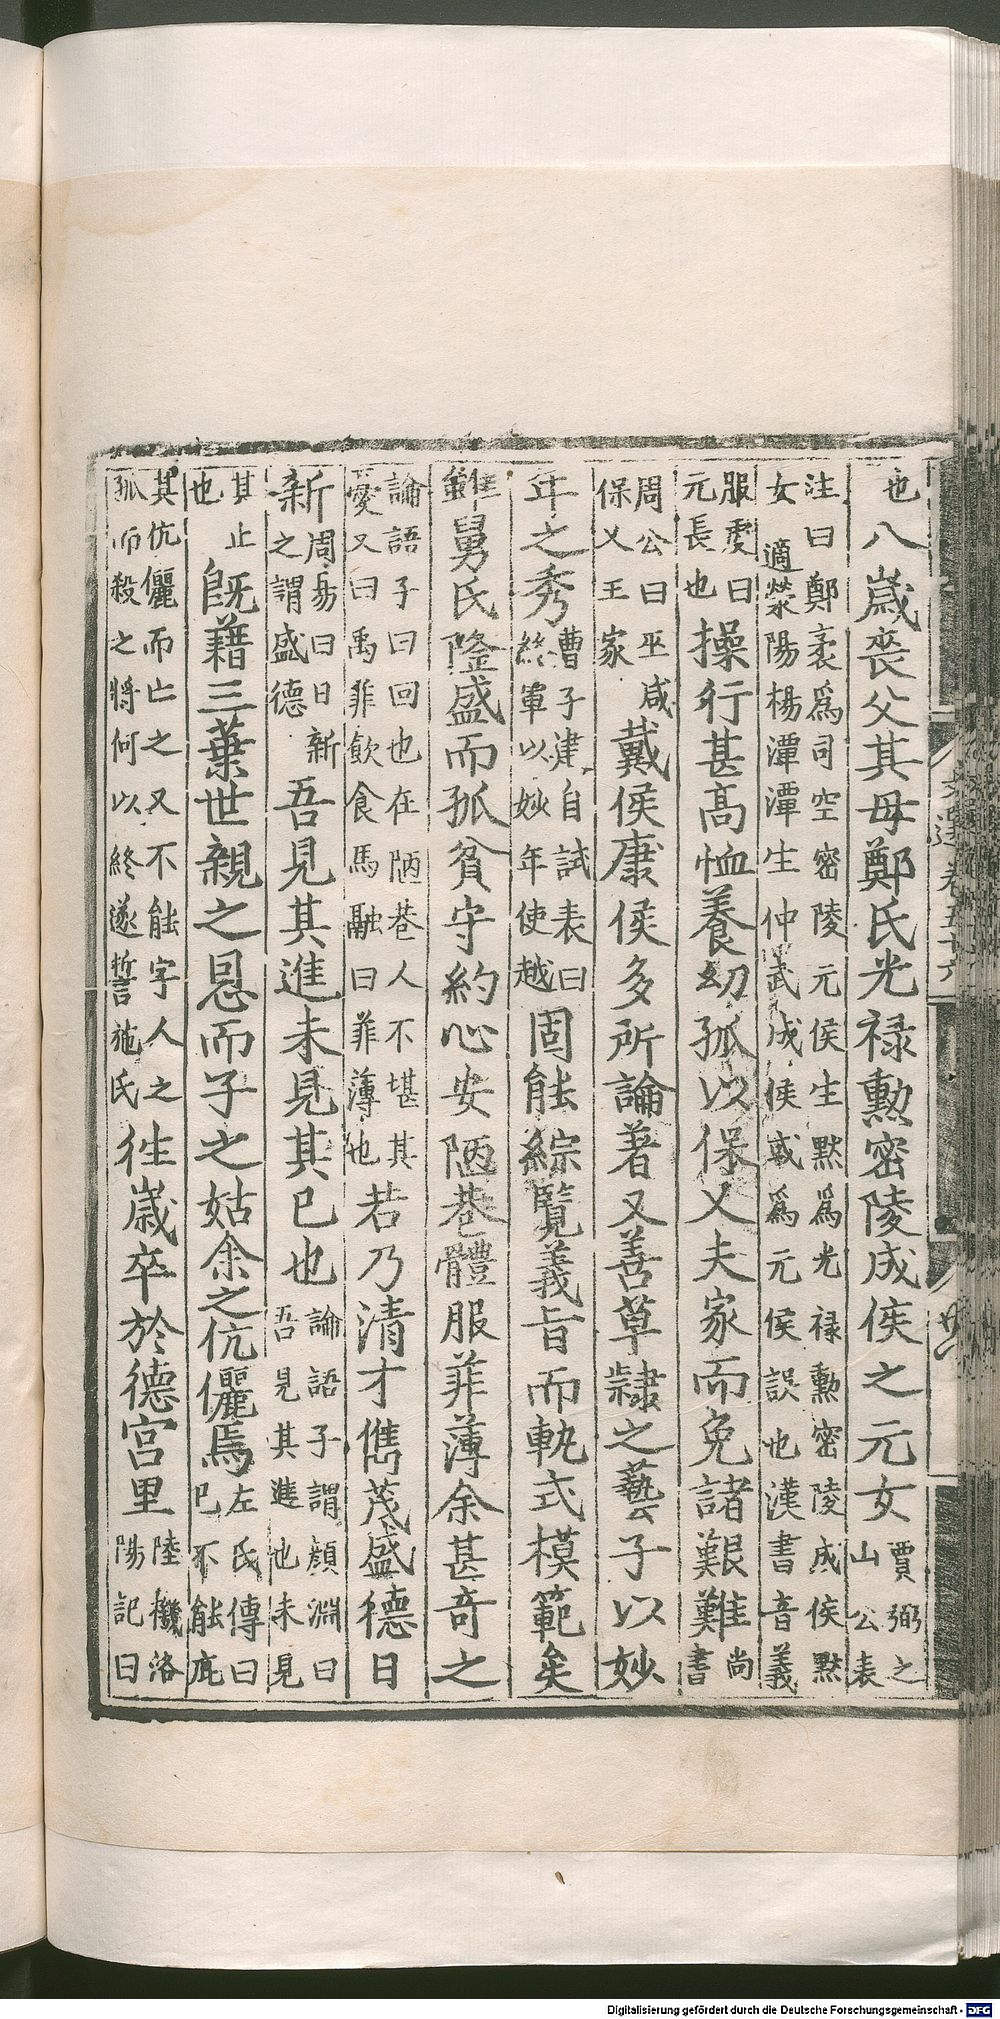 也八歳喪父其母鄭氏光禄勲密陵成侯之元女賈弼之山公表
注曰鄭袤爲司空密陵元侯生黙爲光禄勲密陵成侯黙女適滎陽楊潭潭生仲武成侯或爲元侯誤也漢書音義
服虔曰元長也操行甚髙恤養幼孤以保乂夫家而免諸艱難尚書
周公曰巫咸保乂王家戴侯康侯多所論著又善草隷之藝子以妙
年之秀曹子建自試表曰終軍以妙年使越固能綜覽義旨而軌式模範矣
雖舅氏隆盛而孤貧守約心安陋巷體服菲薄余甚奇之
論語子曰回也在陋巷人不堪其憂又曰禹菲飲食馬融曰菲薄也若乃清才儁茂盛德日
新周易曰日新之謂盛德吾見其進未見其已也論語子謂顔淵曰吾見其進也未見
其止也旣藉三葉世親之恩而子之姑余之伉儷焉左氏傳曰已不能庇
其伉儷而亡之又不能字人之孤而殺之將何以終遂誓施氏徃歳卒於德宫里陸機洛陽記曰
文選卷五十六
Digitalisierung gefördert durch die Deutsche Forschungsgemeinschaft - DFG